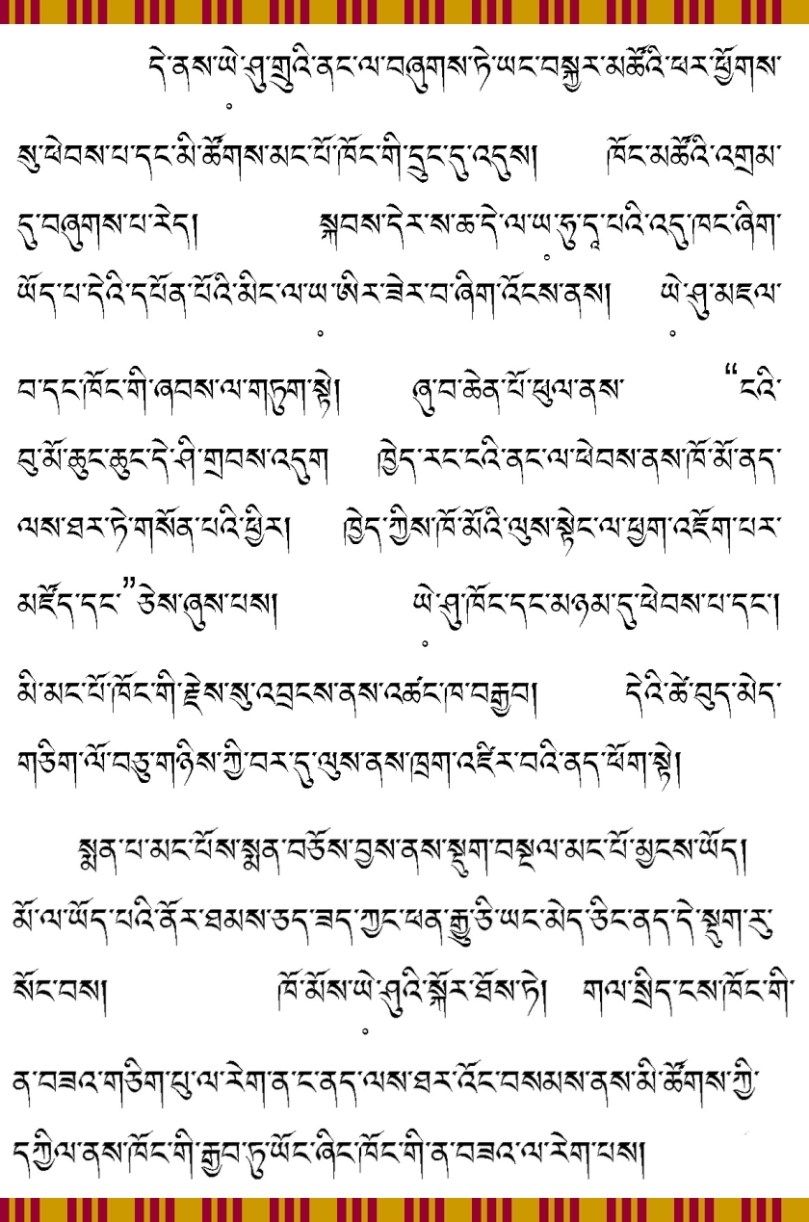 དེ་ནས་ཡེ་ཤུ་གྲུའི་ནང་ལ་བཞུགས་ཏེ་ཡང་བསྐྱར་མཚོའི་ཕར་ཕྱོགས་
སུ་ཕེབས་པ་དང་མི་ཚོགས་མང་པོ་ཁོང་གི་དྲུང་དུ་འདུས། ཁོང་མཚོའི་འགྲམ་
དུ་བཞུགས་པ་རེད། སྐབས་དེར་ས་ཆ་དེ་ལ་ཡ༵་ཧུ་དཱ་པའི་འདུ་ཁང་ཞིག་
ཡོད་པ་དེའི་དཔོན་པོའི་མིང་ལ་ཡ་ཨིར་ཟེར་བ་ཞིག་འོངས་ནས། ཡེ་ཤུ་མཇལ་
བ་དང་ཁོང་གི་ཞབས་ལ་གཏུག་སྟེ། ཞུ་བ་ཆེན་པོ་ཕུལ་ནས་ “ངའི་
བུ་མོ་ཆུང་ཆུང་དེ་ཤི་གྲབས་འདུག ཁྱེད་རང་ངའི་ནང་ལ་ཕེབས་ནས་ཁོ་མོ་ནད་
ལས་ཐར་ཏེ་གསོན་པའི་ཕྱིར། ཁྱེད་ཀྱིས་ཁོ་མོའི་ལུས་སྟེང་ལ་ཕྱག་འཇོག་པར་
མཛོད་དང་”ཅེས་ཞུས་པས། ཡེ་ཤུ་ཁོང་དང་མཉམ་དུ་ཕེབས་པ་དང་།
མི་མང་པོ་ཁོང་གི་རྗེས་སུ་འབྲངས་ནས་འཚང་ཁ་བརྒྱབ། དེའི་ཚེ་བུད་མེད་
གཅིག་ལོ་བཅུ་གཉིས་ཀྱི་བར་དུ་ལུས་ནས་ཁྲག་འཛིར་བའི་ནད་ཕོག་སྟེ།
སྨན་པ་མང་པོས་སྨན་བཅོས་བྱས་ནས་སྡུག་བསྔལ་མང་པོ་མྱངས་ཡོད།
མོ་ལ་ཡོད་པའི་ནོར་ཐམས་ཅད་ཟད་ཀྱང་ཕན་རྒྱུ་ཅི་ཡང་མེད་ཅིང་ནད་དེ་སྡུག་རུ་
སོང་བས། ཁོ་མོས་ཡེ་ཤུའི་སྐོར་ཐོས་ཏེ། གལ་སྲིད་ངས་ཁོང་གི་
ན་བཟའ་གཅིག་པུ་ལ་རེག་ན་ང་ནད་ལས་ཐར་འོང་བསམས་ནས་མི་ཚོགས་ཀྱི་
དཀྱིལ་ནས་ཁོང་གི་རྒྱབ་ཏུ་ཡོང་ཞིང་ཁོང་གི་ན་བཟའ་ལ་རེག་པས།